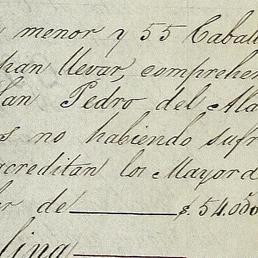 menor y 55 Caball
phan llevar, comprehen
San Pedro del Ala
s no habiendo sufr
acreditan los Mayord
or de $ 54.000
lina